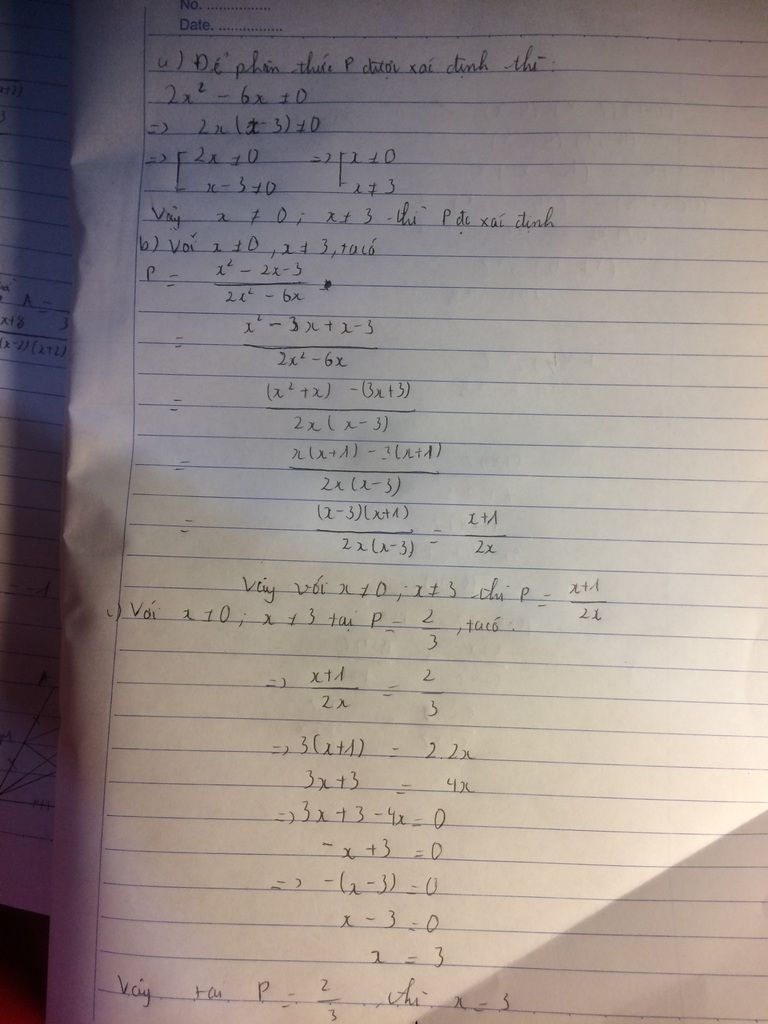 No. ................
Date. ................
a) Để phân thức P được xác định thì:
2x² - 6x ≠ 0
=> 2x(x-3) ≠ 0
=> [ 2x ≠ 0 => [ x ≠ 0
x-3 ≠ 0 x ≠ 3
Vậy x ≠ 0 ; x ≠ 3 thì P đc xác định
b) Với x ≠ 0, x ≠ 3, ta có
P = (x² - 2x - 3) / (2x² - 6x)
= (x² - 3x + x - 3) / (2x² - 6x)
= ((x² + x) - (3x+3)) / (2x(x-3))
= (x(x+1) - 3(x+1)) / (2x(x-3))
= ((x-3)(x+1)) / (2x(x-3)) = (x+1) / (2x)
Vậy với x ≠ 0 ; x ≠ 3 thì P = (x+1) / (2x)
c) Với x ≠ 0 ; x ≠ 3 tại P = 2/3, ta có:
=> (x+1) / (2x) = 2/3
=> 3(x+1) = 2.2x
3x+3 = 4x
=> 3x + 3 - 4x = 0
-x + 3 = 0
=> -(x-3) = 0
x - 3 = 0
x = 3
Vậy tại P = 2/3 thì x = 3
A =
x+8
3
(x-2)(x+2)